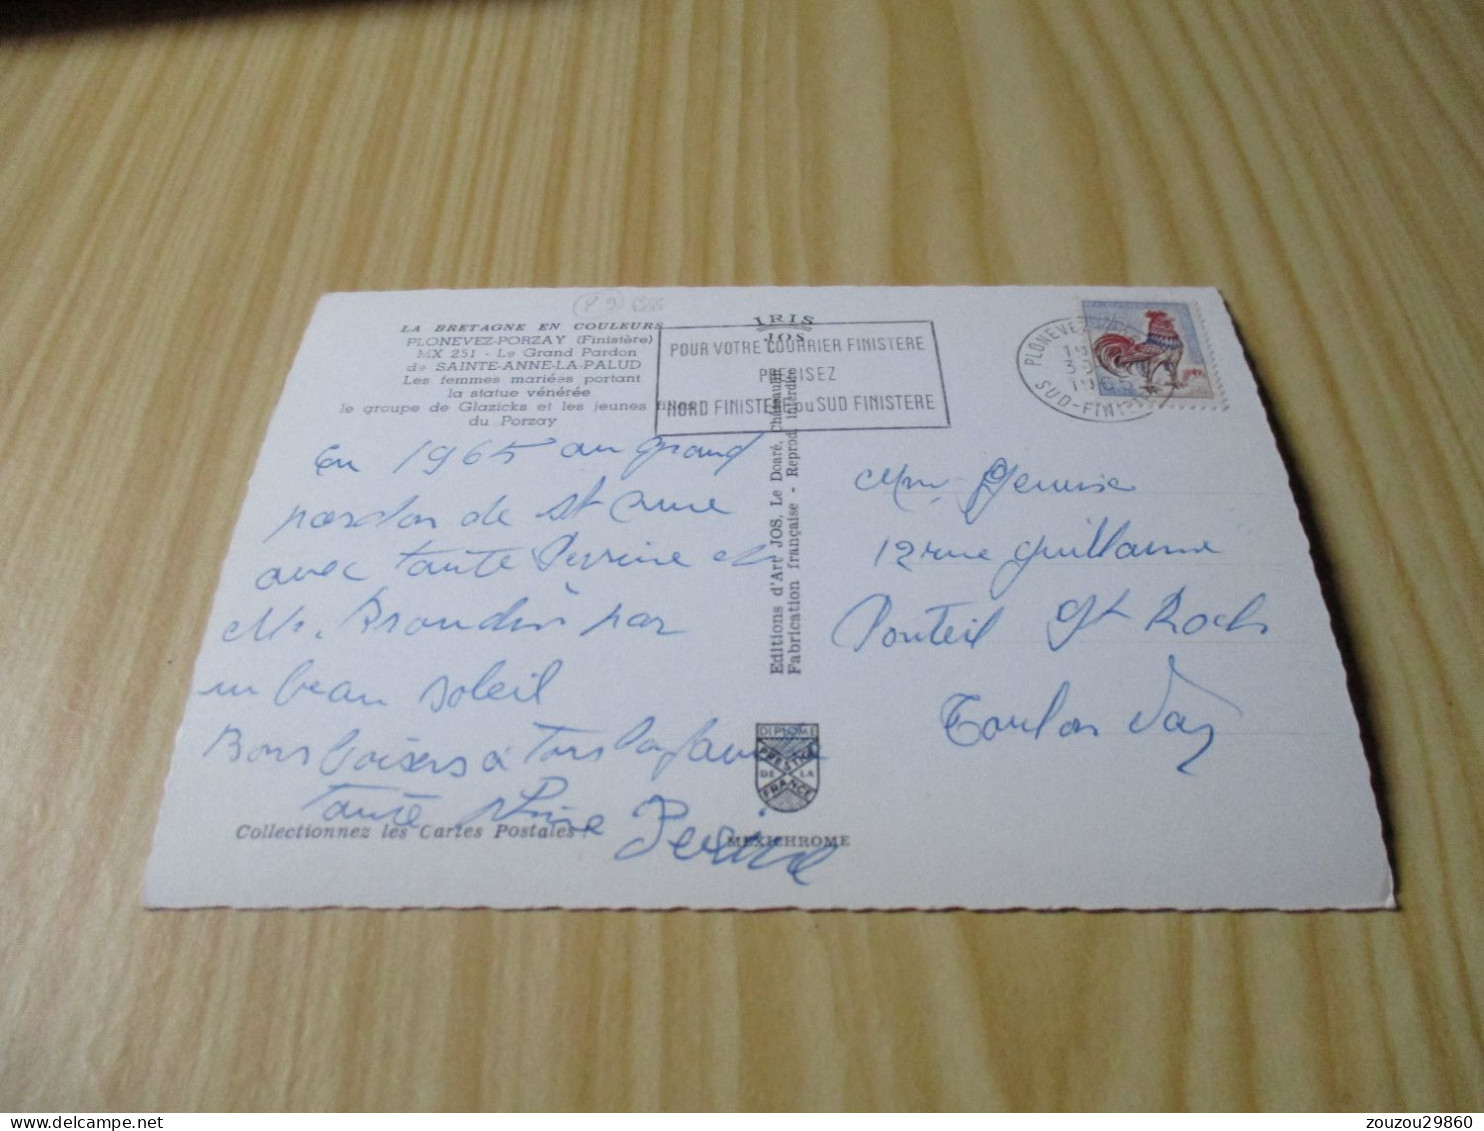 LA BRETAGNE EN COULEURS
PLONEVEZ-PORZAY (Finistère)
MX 251 - Le Grand Pardon
de SAINTE-ANNE-LA-PALUD
Les femmes mariées portant
la statue vénérée
le groupe de Glazicks et les jeunes filles
du Porzay
IRIS
JOS
POUR VOTRE COURRIER FINISTERE
PRECISEZ
NORD FINISTERE ou SUD FINISTERE
PLONEVEZ
1965
SUD-FINISTERE
En 1965 au grand
pardon de St Anne
avec tante Perrine et
Mr. par
un beau soleil
Bons baisers à Tous la famille
tante Perrine
Editions d'Art JOS, Le Doaré, Châteaulin
Fabrication française - Reprod. interdite
Mm
12 rue Guillaume
Ponteil St Roch
Toulon Var
DIPLOME
PRESTIGE
DE LA
FRANCE
Collectionnez les Cartes Postales !
MEXICHROME
zouzou29860